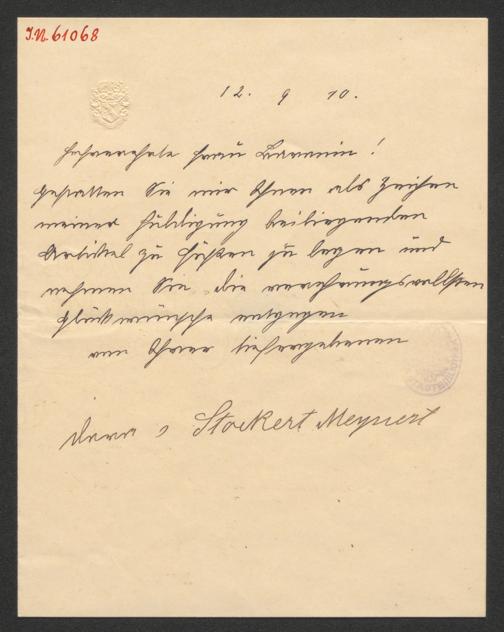 I.N. 61068
12. 9 10.
Hochverehrte Frau Baronin!
Gestatten Sie mir Ihnen als Zeichen
meiner Huldigung beiliegenden
Artikel zu Füßen zu legen und
nehmen Sie die verehrungsvollsten
Glückwünsche entgegen
von Ihrer tiefergebenen
Dora v Stockert Meynert